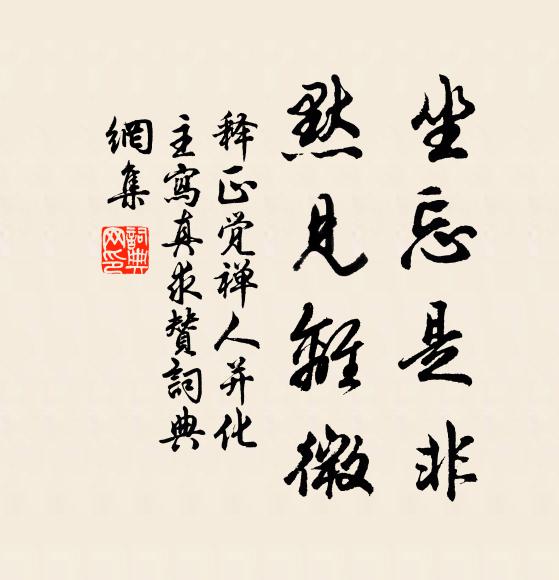 坐忘是非
默见離微
释正觉禅人并化
主寫真求贊詞典
網集
詞典網印